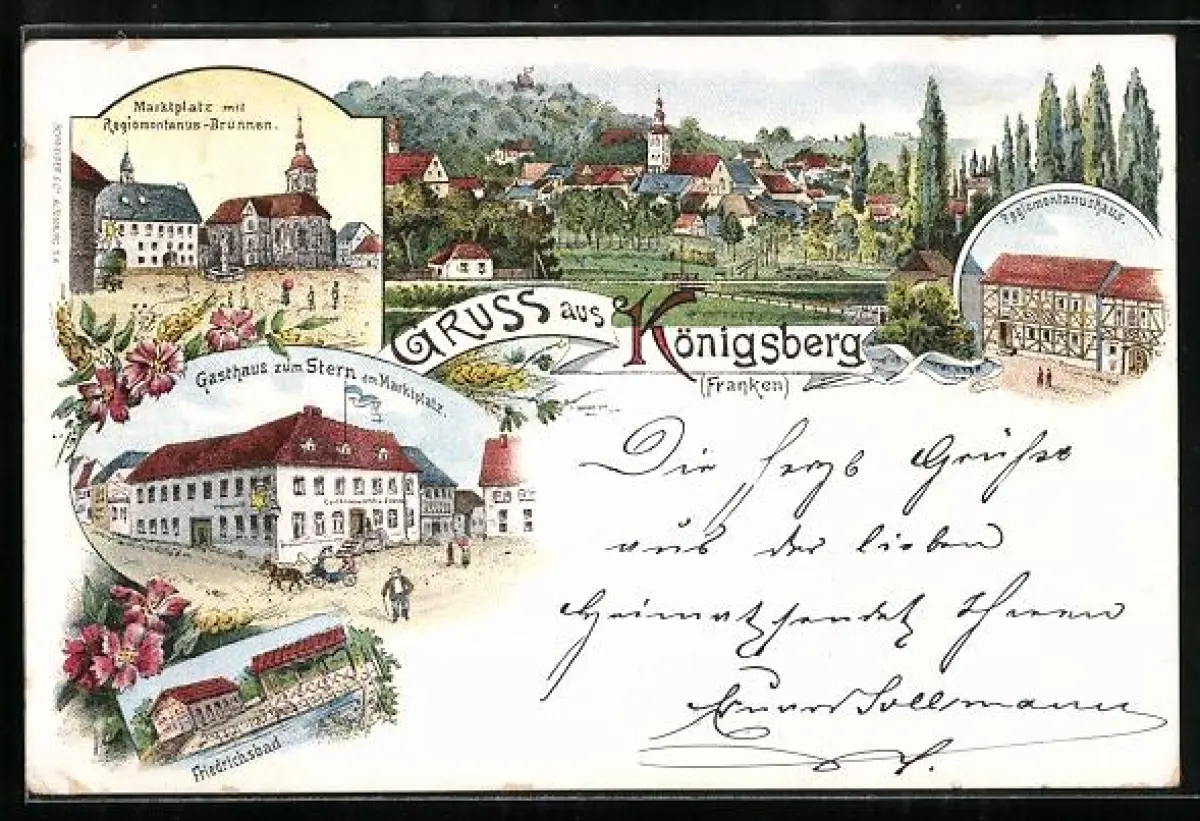 Marktplatz mit
Regiomontanus-Brunnen.
Regiomontanushaus.
GRUSS aus Königsberg
(Franken)
Gasthaus zum Stern am Marktplatz.
Friedrichsbad
Die herzb Grüße
aus der lieben
Heimat sendet Ihnen
Sollmann